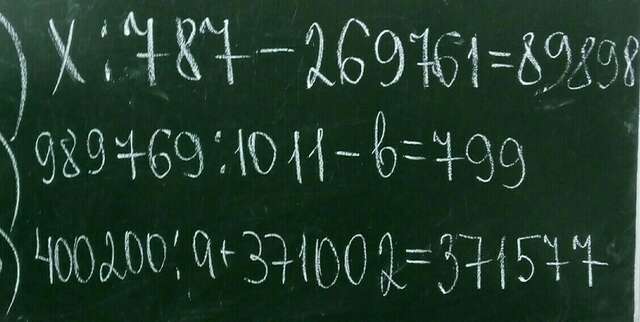 ) X : 787 - 269761 = 89898
) 989769 : 1011 - b = 799
) 400200 : a + 371002 = 371577